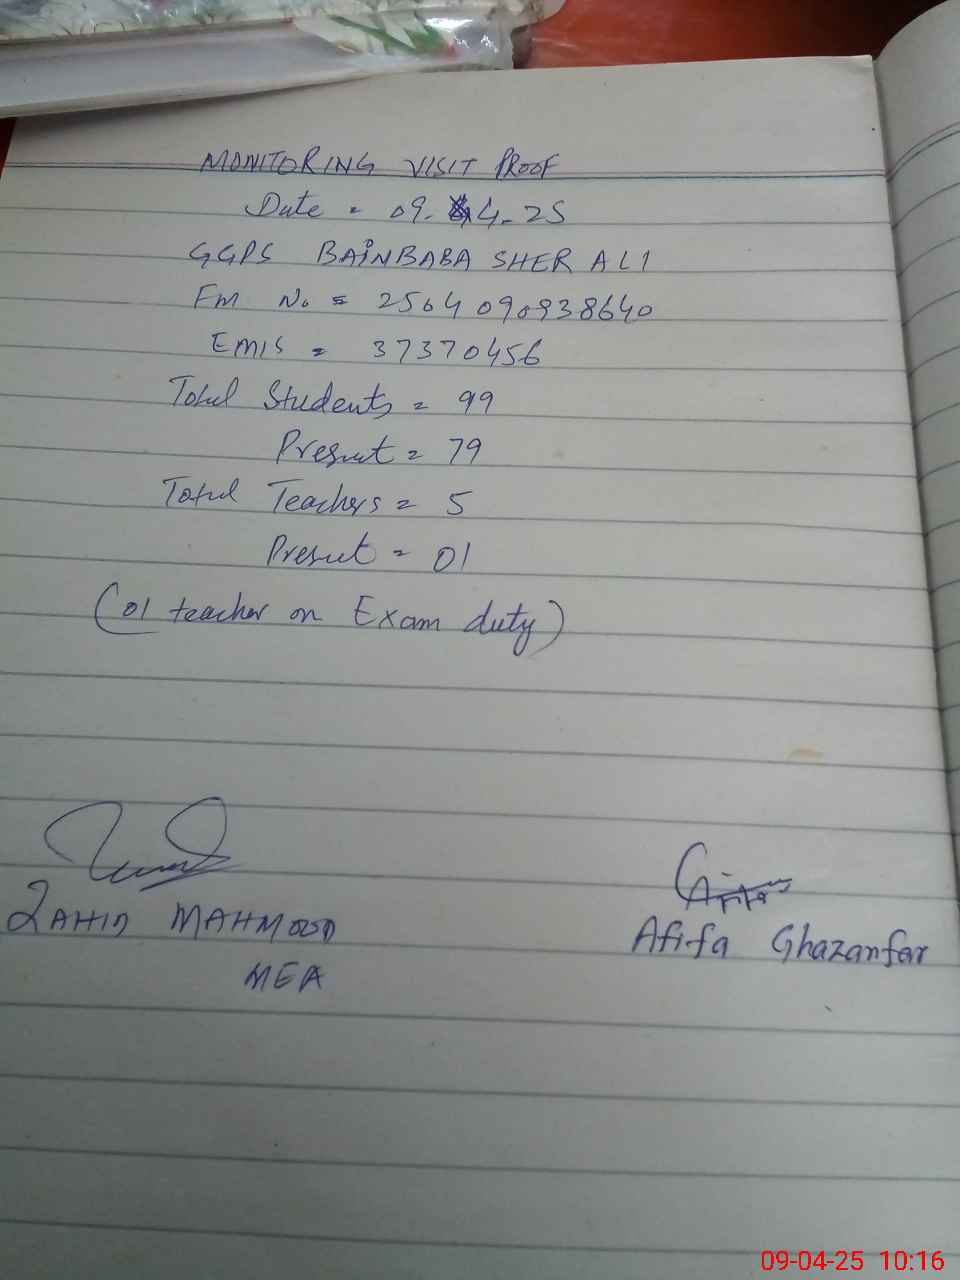 MONITORING VISIT PROOF
Date = 09. 4-25
GGPS BAINBABA SHER ALI
FM No = 2504090938640
EMIS = 37370456
Total Students = 99
Present = 79
Total Teachers = 5
Present = 01
(01 teacher on Exam duty)
ZAHID MAHMOOD
MEA
Afifa
Afifa Ghazanfar
09-04-25 10:16